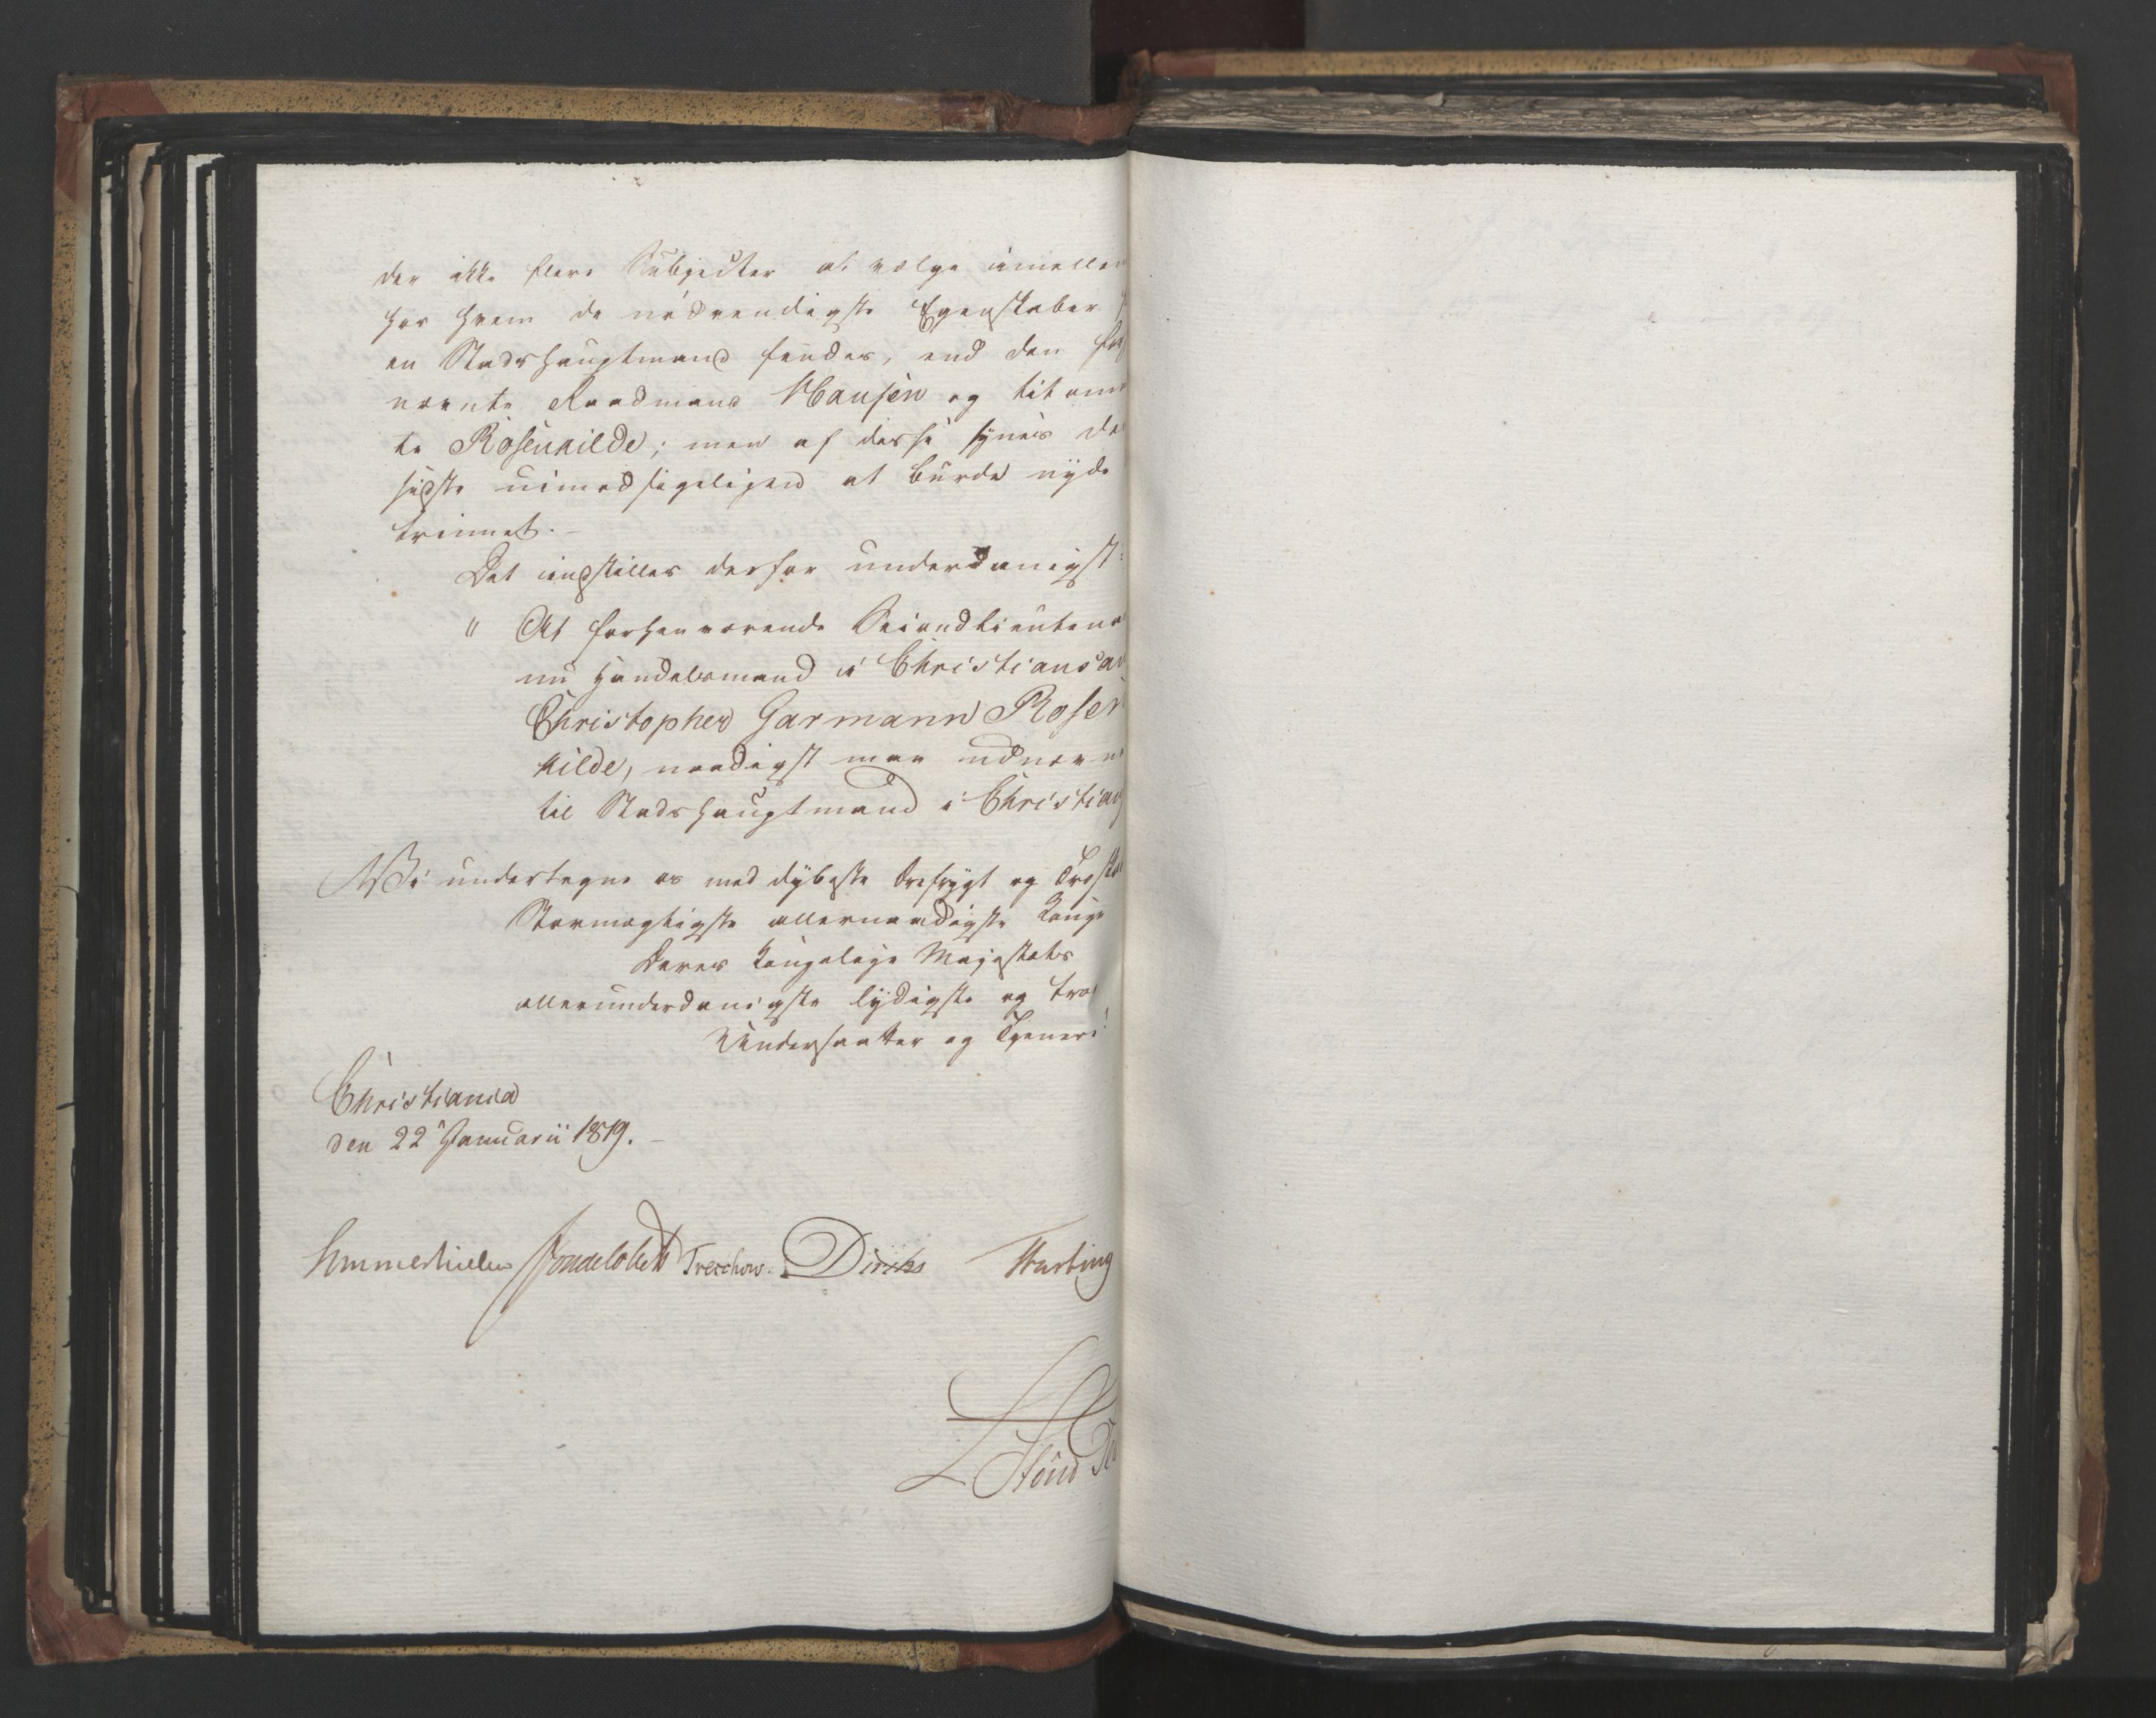 der ikke flere Subjecter at vælge imellem
hos hvem de nödvendigste Egenskaber
en Stadshauptmand findes, end den
nævnte Raadmand Mausen og bit
te Rosenkilde; men af disse synes
sidste uimodsigeligen at burde nyde
trinnet. –
Det indstilles derfor underdanigst:
" At forhenværende Secondlieutena
nu Handelsmand i Christiansan
Christopher Garmann Rosen
kilde, naadigst maa udnævn
til Stadshauptmand i Christians
Vi undertegne os med dybeste Ærefrygt og Troska
Stormægtigste allernaadigste Konge
Deres Kongelige Majestæts
allerunderdanigste lydigste og tro
Undersaatter og Tjenere
Christiania
den 22 Januarii 1819. –
Sommerhielm Treschow. Diriks